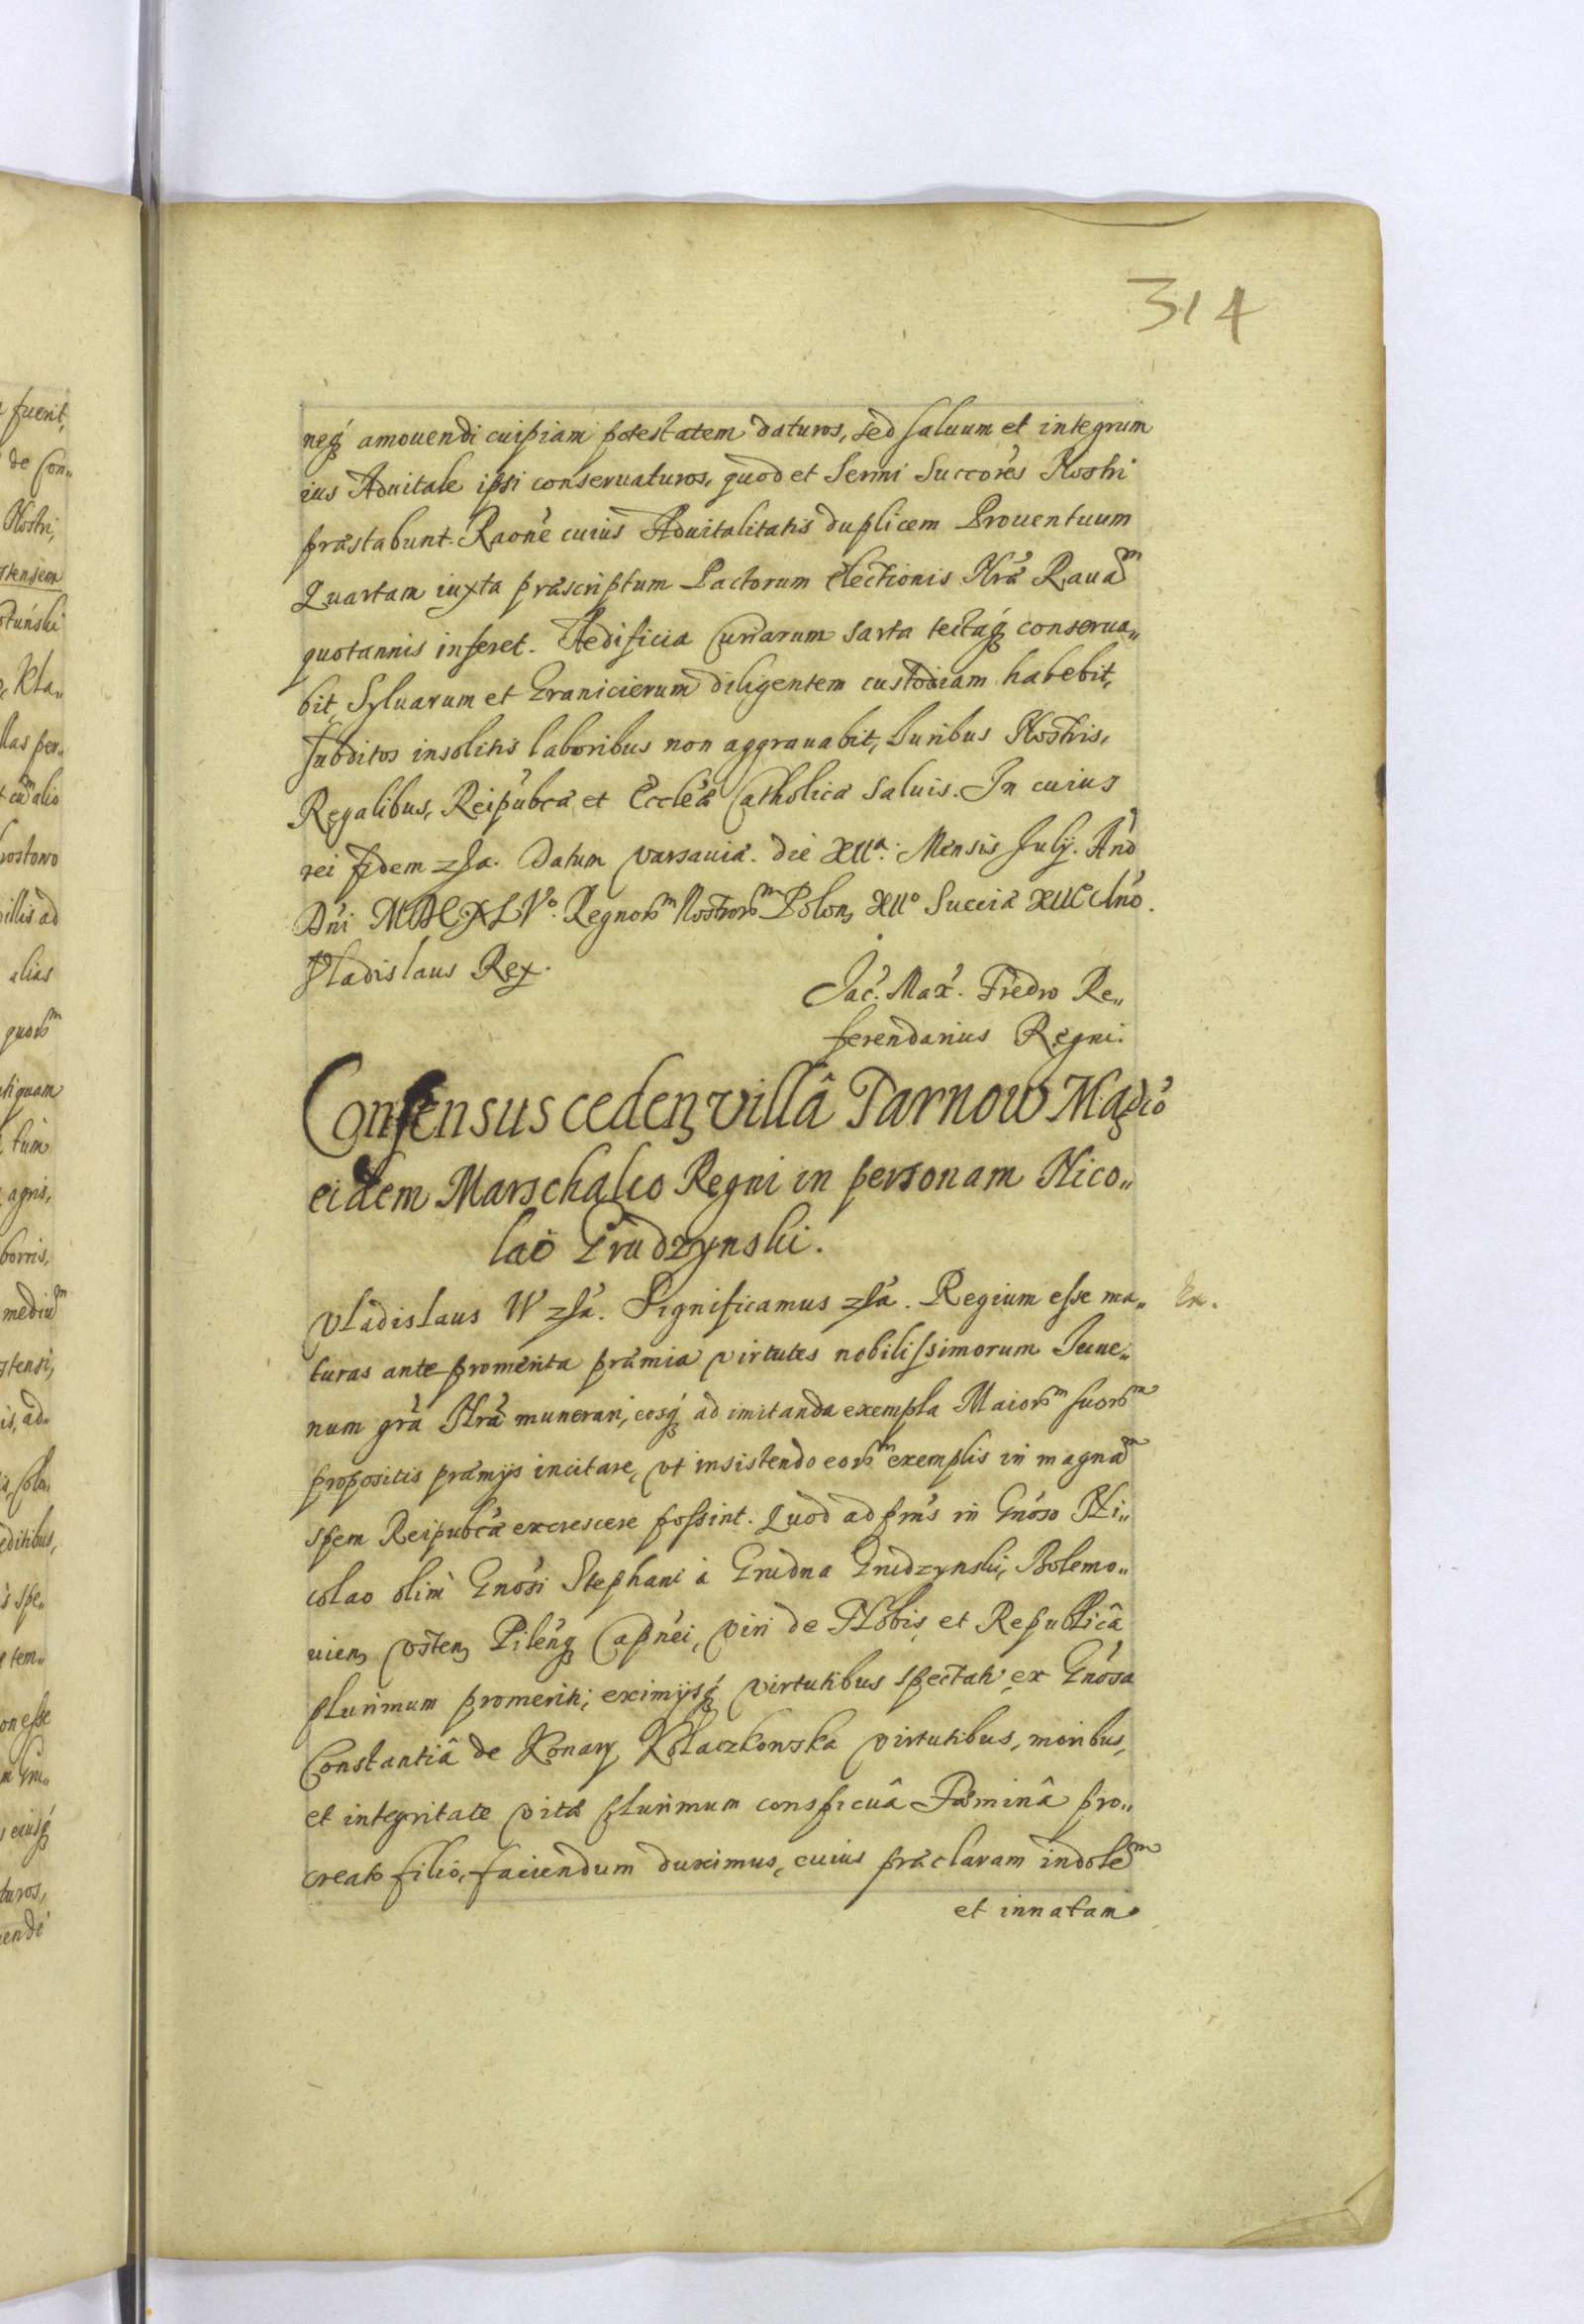 314
neq₃ amouendi cuipiam potestatem daturos, sed saluum et integrum
ius Aduitale ipsi conseruaturos, quod et Sermi Succores Nostri
præstabunt. Raone cuius Aduitalitatis duplicem Prouentuum
Quartam iuxta præscriptum Pactorum Electionis Nræ Rauam
quotannis inferet. Aedificia Curiarum sarta tectaq₃ conserua„
bit, Syluarum et Granicierum diligentem custodiam habebit,
Subditos insolitis laboribus non aggrauabit, Iuribus Nostris,
Regalibus, Reipubcæ et Eccleæ Catholicæ saluis. In cuius
rei fidem Varsauiæ. die XIIa. Mensis July. And
Dni MDCXLVo. Regnorm Nostrorm Polon, XIIo Sueciæ XIII Ano.
Vladislaus Rex.
Jac. Max. Fredro Re„
ferendarius Regni.
Consensus ceden villâ Tarnow Magco
eidem Marschalco Regni in personam Nico„
lai Grudzynski.
Vladislaus IV. Significamus. Regium esse ma„
turas ante promerita præmia virtutes nobilissimorum Iuue„
num grâ Nrâ munerari, eosq₃ ad imitanda exempla Maiorm suorm
propositis præmijs incitare, vt insistendo eorm exemplis in magnam
spem Reipubcæ excrescere possint. Quod ad prns in Gnoso Ni„
colao olim Gnosi Stephani à Grudna Grudzynski, Bolemo„
uien, Vsten, Pilenq₃ Capnei, viri de Nobis et Republicâ
plurimum promeriti, eximijsq₃ virtutibus spectati ex Gnosa
Constantiâ de Konary Kolaczkowska virtutibus, moribus,
et integritate vitæ plurimum conspicuâ Fæminâ pro„
creato filio, faciendum duximus, cuius præclaram indolem
et innatam